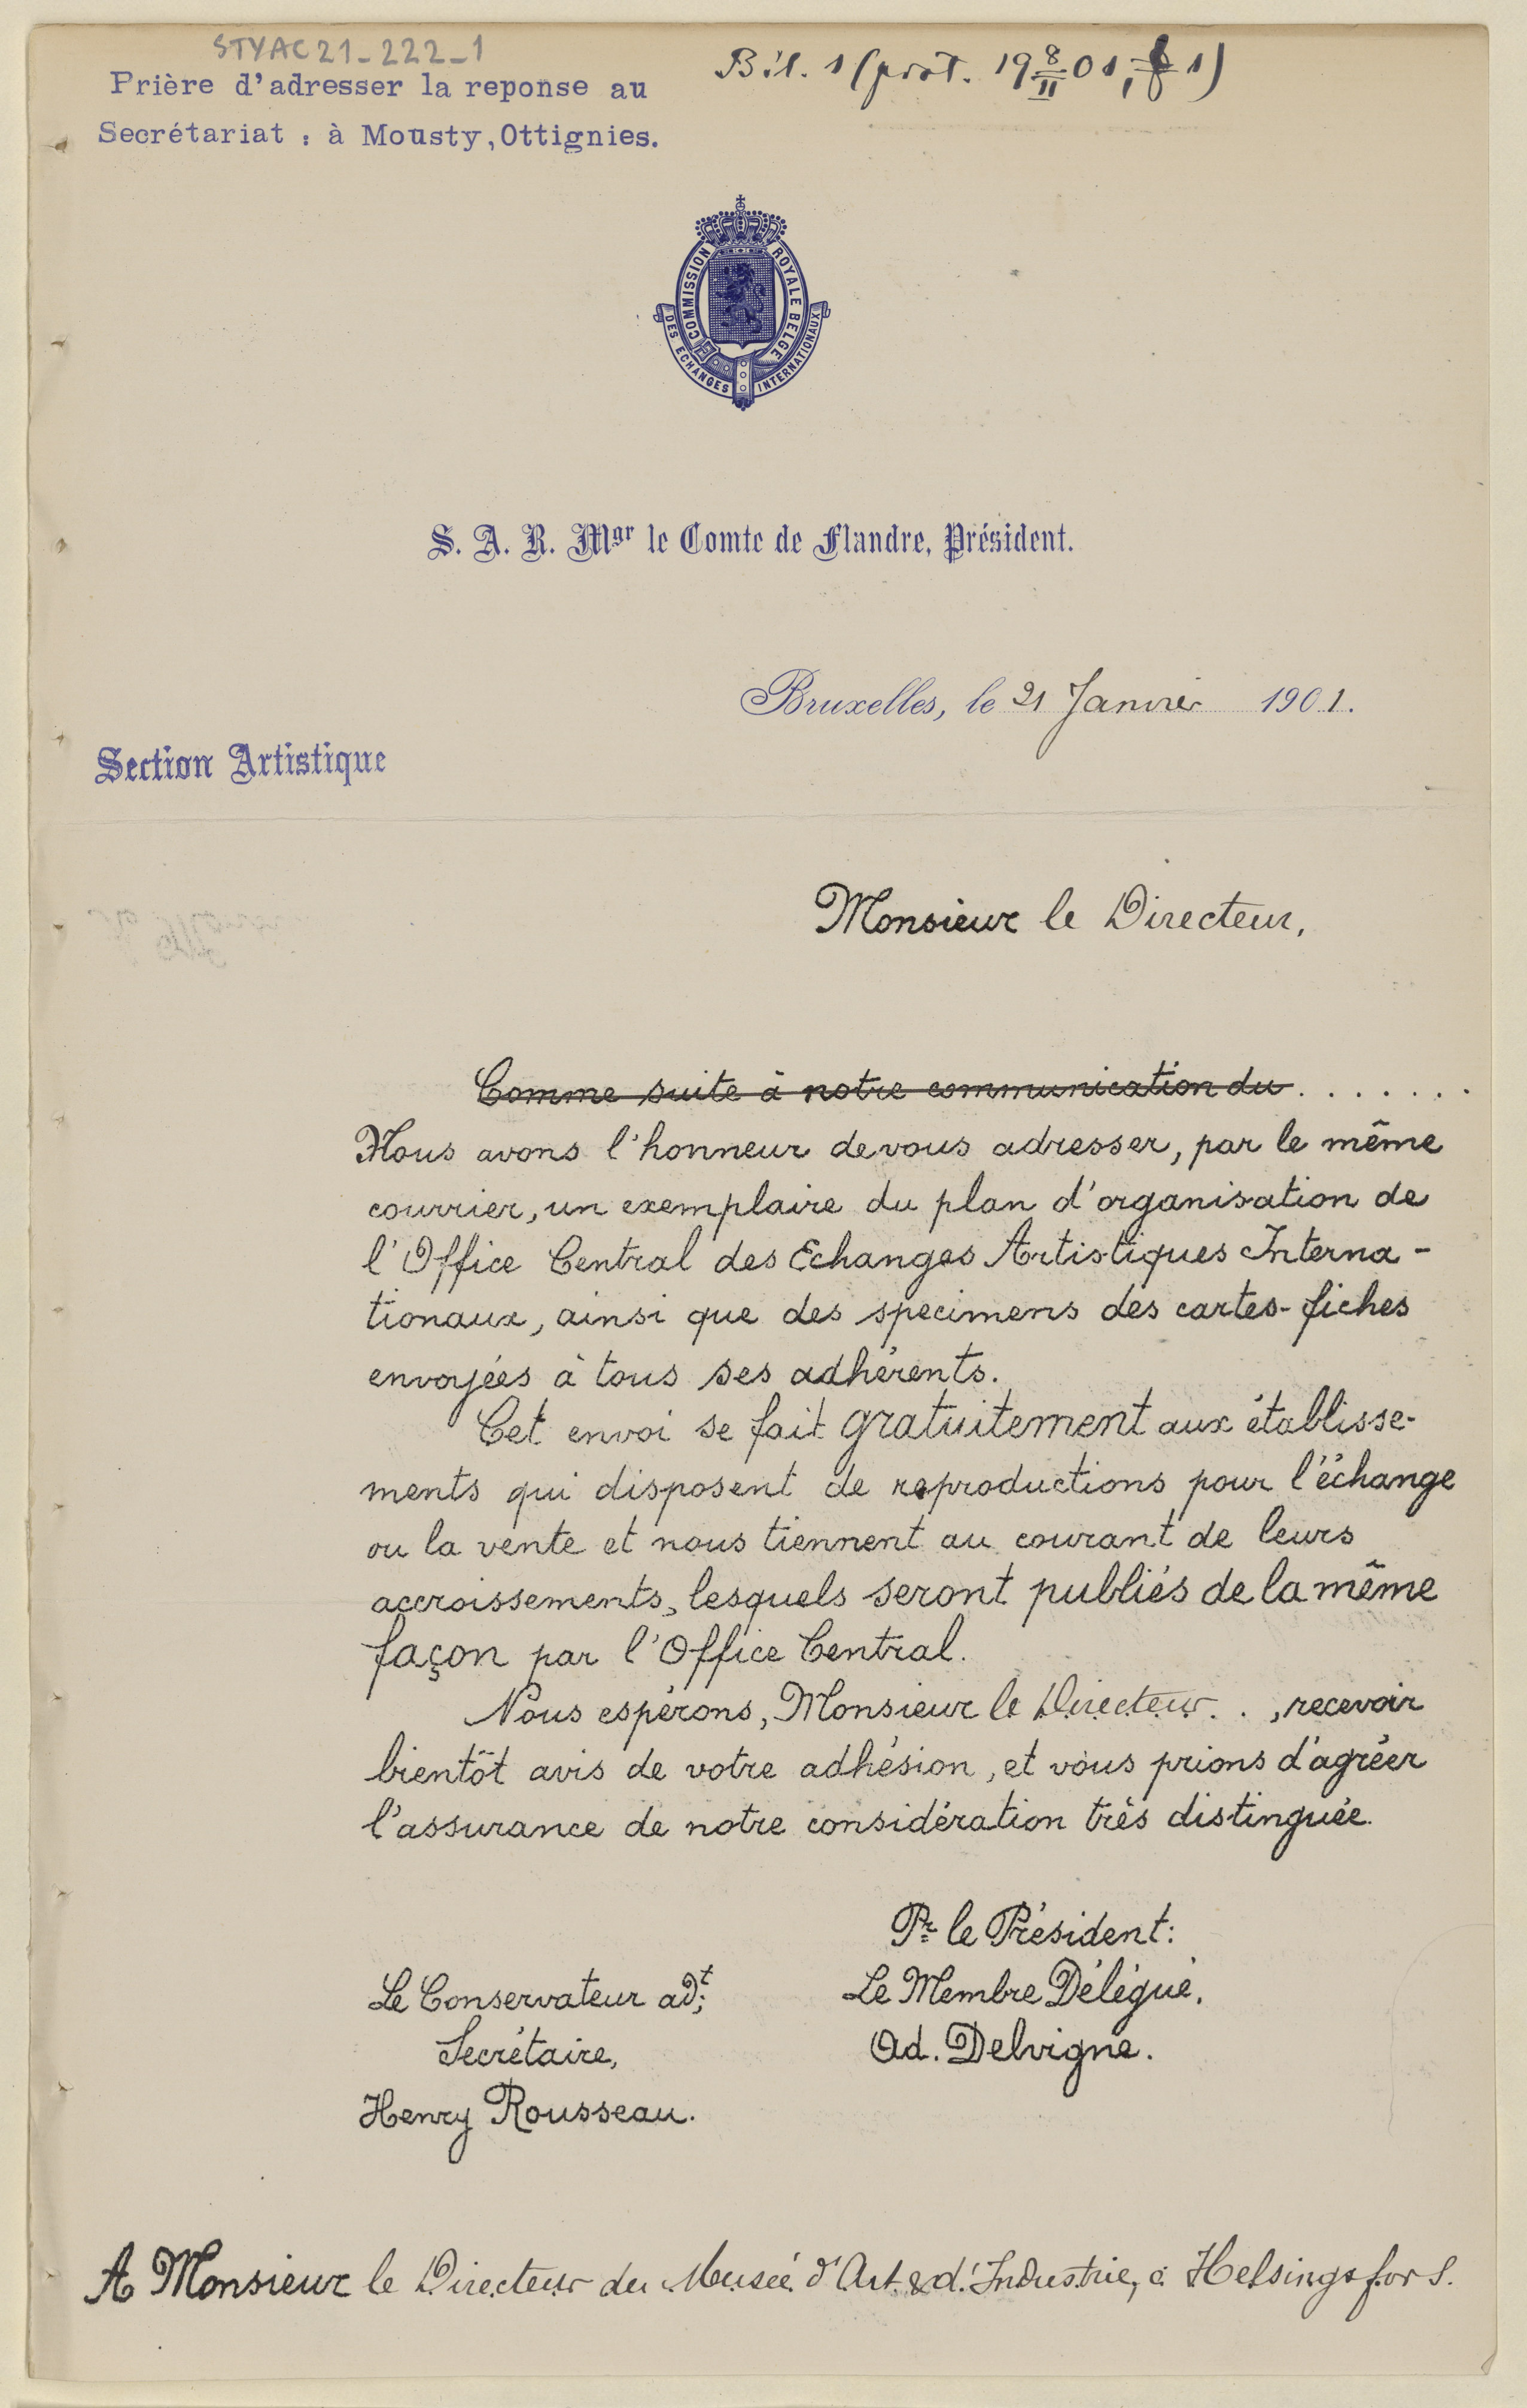 STYAC21_222_1
Bil. 1 (prot. 19 8/II 01, § 1)
Prière d'adresser la reponse au
Secrétariat : à Mousty, Ottignies.
COMMISSION ROYALE BELGE
DES ECHANGES INTERNATIONAUX
S. A. R. Mgr le Comte de Flandre, Président.
Bruxelles, le 21 Janvier 1901.
Section Artistique
Monsieur le Directeur,
Comme suite à notre communication du . . . . . . .
Nous avons l'honneur de vous adresser, par le même
courrier, un exemplaire du plan d'organisation de
l'Office Central des Echanges Artistiques Interna-
tionaux, ainsi que des specimens des cartes-fiches
envoyées à tous ses adhérents.
Cet envoi se fait gratuitement aux établisse-
ments qui disposent de reproductions pour l'échange
ou la vente et nous tiennent au courant de leurs
accroissements, lesquels seront publiés de la même
façon par l'Office Central.
Nous espérons, Monsieur le Directeur . . , recevoir
bientôt avis de votre adhésion, et vous prions d'agréer
l'assurance de notre considération très distinguée.
Pr le Président:
Le Membre Délégué,
Ad. Delvigne.
Le Conservateur adt;
Secrétaire,
Henry Rousseau.
A Monsieur le Directeur du Musée d'Art & d'Industrie, à Helsingfors.